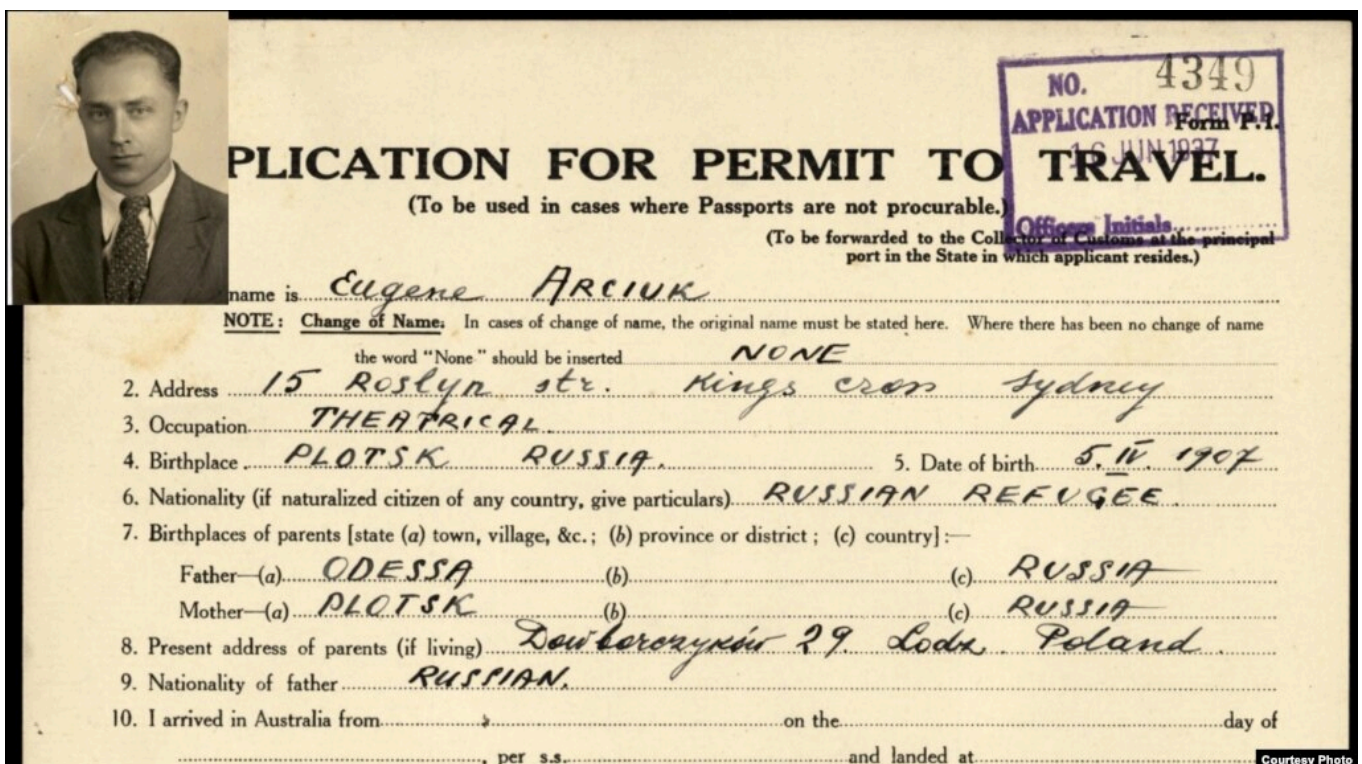 NO. 4349
APPLICATION RECEIVED
Form P.1.
16 JUN 1937
PLICATION FOR PERMIT TO TRAVEL.
(To be used in cases where Passports are not procurable.)
Officers Initials
(To be forwarded to the Collector of Customs at the principal
port in the State in which applicant resides.)
name is Eugene ARCIUK
NOTE: Change of Name. In cases of change of name, the original name must be stated here. Where there has been no change of name
the word "None" should be inserted NONE
2. Address 15 Roslyn str. Kings cross Sydney
3. Occupation THEATRICAL.
4. Birthplace PLOTSK RUSSIA. 5. Date of birth 5. IV. 1907
6. Nationality (if naturalized citizen of any country, give particulars) RUSSIAN REFUGEE.
7. Birthplaces of parents [state (a) town, village, &c.; (b) province or district; (c) country]:—
Father—(a) ODESSA (b) (c) RUSSIA
Mother—(a) PLOTSK (b) (c) RUSSIA
8. Present address of parents (if living) Dowborczyków 29. Lodz. Poland.
9. Nationality of father RUSSIAN.
10. I arrived in Australia from on the day of
, per s.s. and landed at
Courtesy Photo